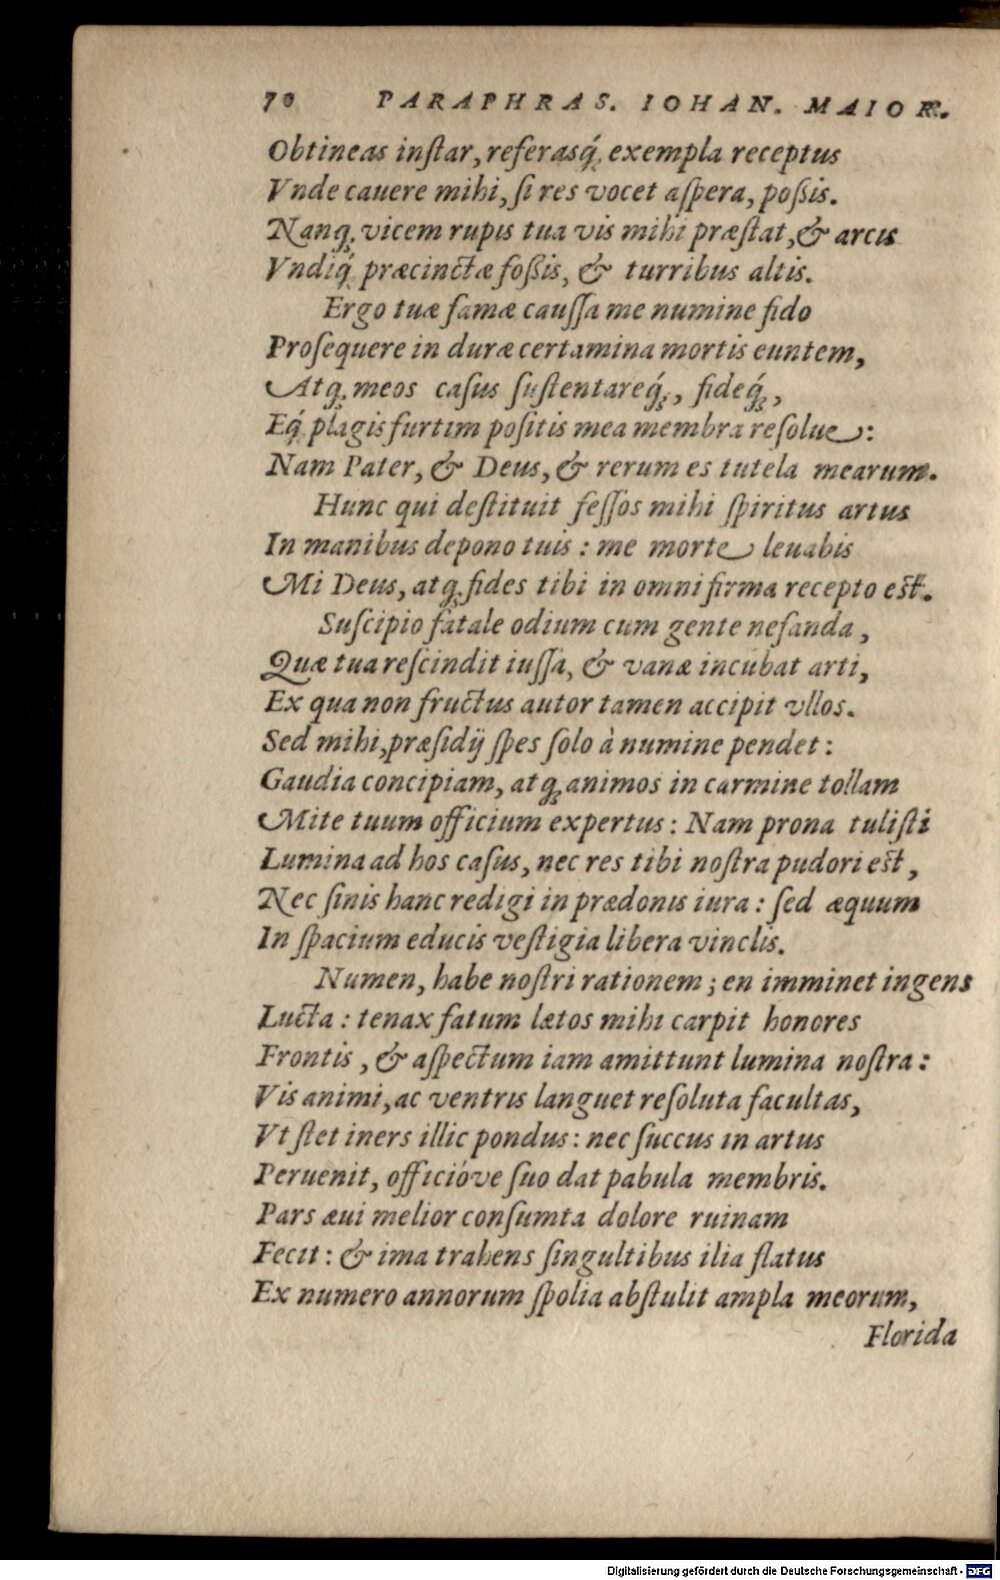 70 PARAPHRAS. IOHAN. MAIOR.
Obtineas inſtar, referasq́; exempla receptus
Vnde cauere mihi, ſi res vocet aſpera, poſsis.
Nanq; vicem rupis tua vis mihi præſtat, & arcis
Vndiq́; præcinctæ foſsis, & turribus altis.
Ergo tuæ famæ cauſſa me numine fido
Proſequere in duræ certamina mortis euntem,
Atq; meos caſus ſuſtentareq́;, fideq́;,
Eq́; plagis furtim poſitis mea membra reſolue:
Nam Pater, & Deus, & rerum es tutela mearum.
Hunc qui deſtituit feſſos mihi ſpiritus artus
In manibus depono tuis: me morte leuabis
Mi Deus, atq; fides tibi in omni firma recepto eſt.
Suſcipio fatale odium cum gente nefanda,
Quæ tua reſcindit iuſſa, & vanæ incubat arti,
Ex qua non fructus autor tamen accipit vllos.
Sed mihi, præſidij ſpes ſolo à numine pendet:
Gaudia concipiam, atq; animos in carmine tollam
Mite tuum officium expertus: Nam prona tuliſti
Lumina ad hos caſus, nec res tibi noſtra pudori eſt,
Nec ſinis hanc redigi in prædonis iura: ſed æquum
In ſpacium educis veſtigia libera vinclis.
Numen, habe noſtri rationem; en imminet ingens
Lucta: tenax fatum lætos mihi carpit honores
Frontis, & aſpectum iam amittunt lumina noſtra:
Vis animi, ac ventris languet reſoluta facultas,
Vt ſtet iners illic pondus: nec ſuccus in artus
Peruenit, officióve ſuo dat pabula membris.
Pars æui melior conſumta dolore ruinam
Fecit: & ima trahens ſingultibus ilia flatus
Ex numero annorum ſpolia abſtulit ampla meorum,
Florida
Digitalisierung gefördert durch die Deutsche Forschungsgemeinschaft - DFG